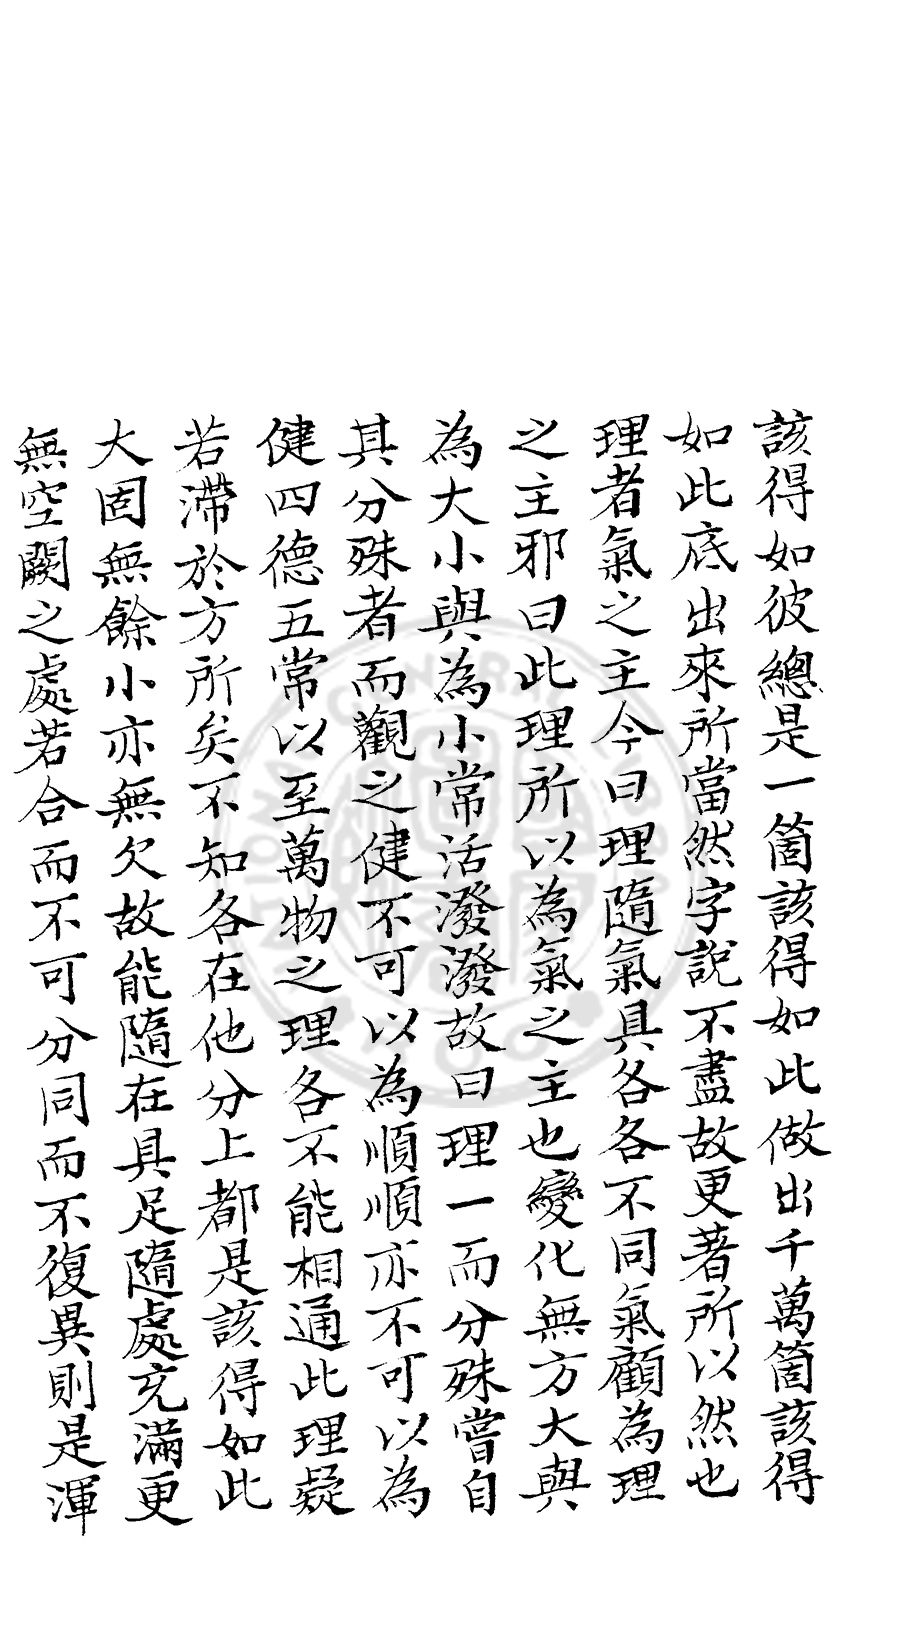 該得如彼總是一箇該得如此做出千萬箇該得
如此底出來所當然字說不盡故更著所以然也
理者氣之主今曰理隨氣具各各不同氣顧為理
之主邪曰此理所以為氣之主也變化無方大與
為大小與為小常活潑潑故曰理一而分殊嘗自
其分殊者而觀之健不可以為順順亦不可以為
健四德五常以至萬物之理各不能相通此理疑
若滯於方所矣不知各在他分上都是該得如此
大固無餘小亦無欠故能隨在具足隨處充滿更
無空闕之處若合而不可分同而不復異則是渾